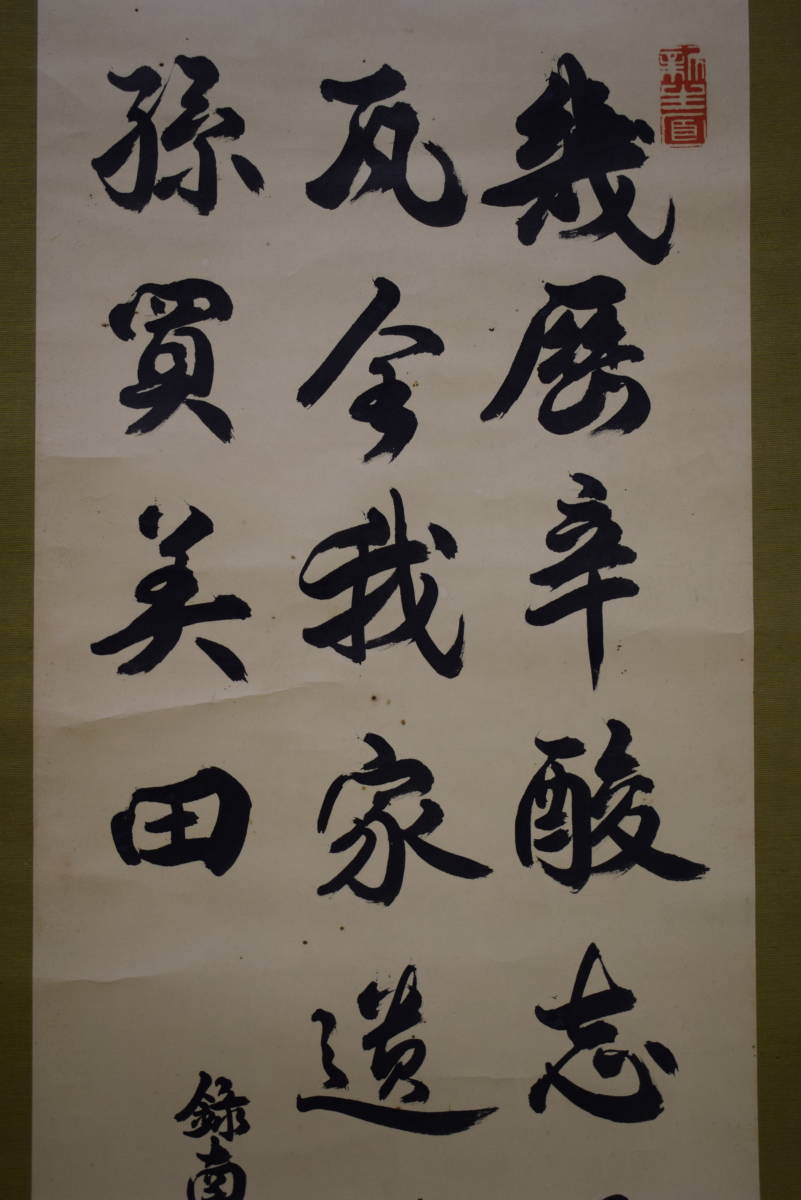 幾歷辛酸志
瓦全我家遺
孫買美田
錄南